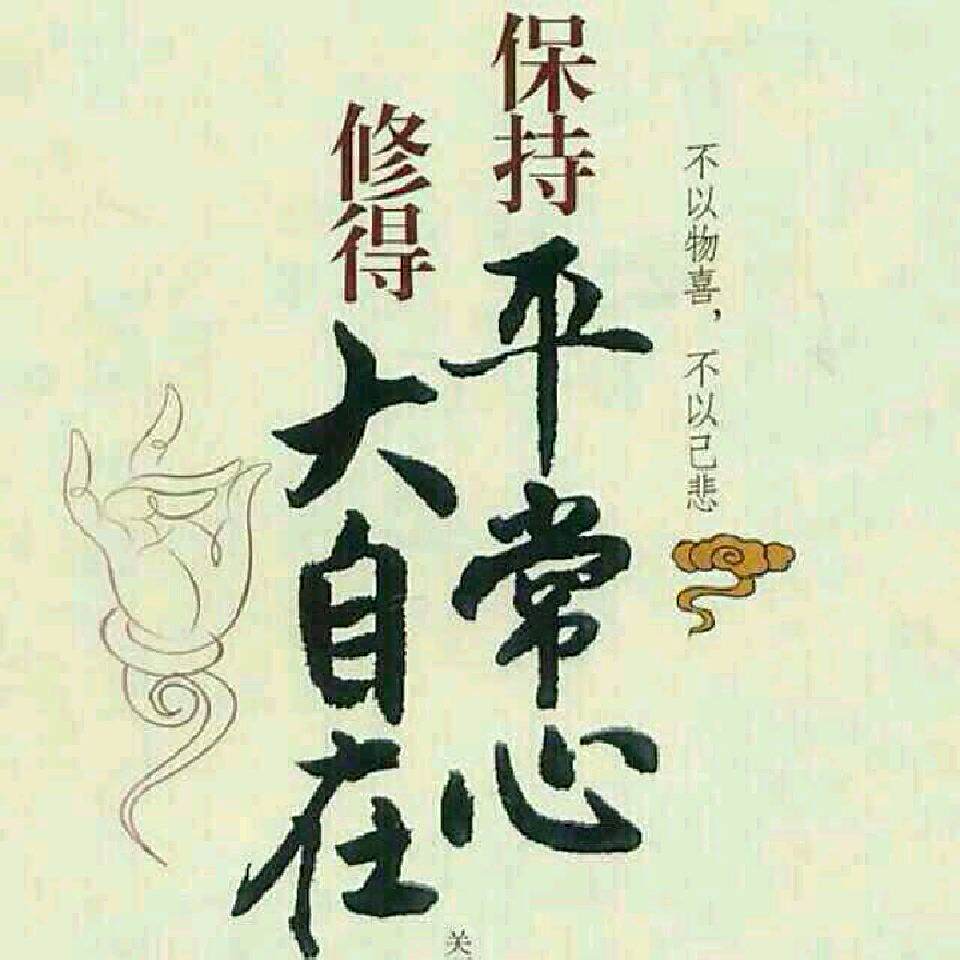 不以物喜，不以己悲
保持平常心
修得大自在
关